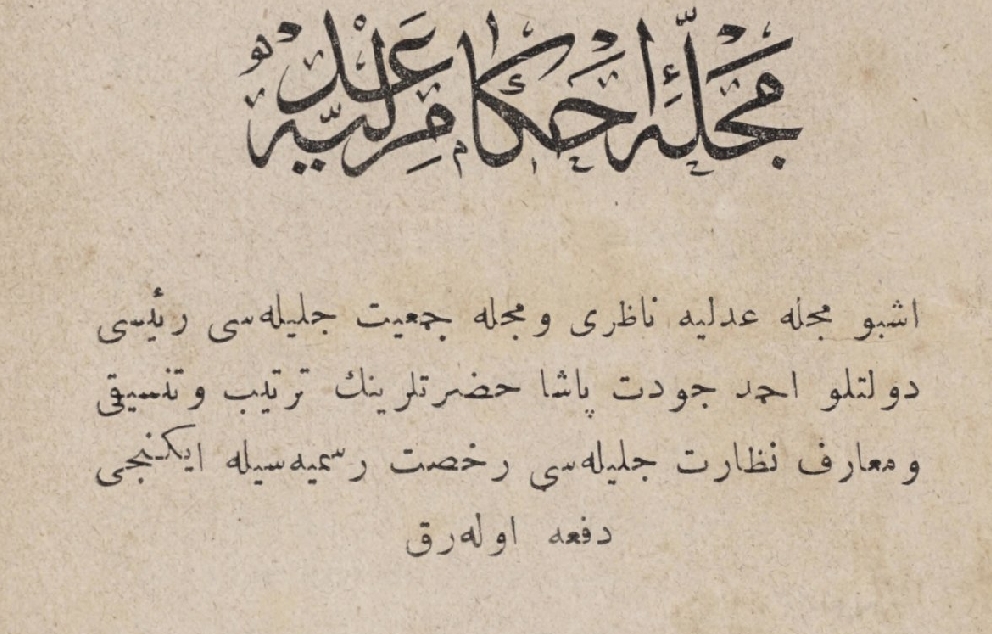 مجلّۀ احكام عدليّه
اشبو مجله عدليه ناظرى و مجله جمعيت جليله‌سى رئيسى
دولتلو احمد جودت پاشا حضرتلرينك ترتيب و تنسيقى
و معارف نظارت جليله‌سى رخصت رسميه‌سيله ايكنجى
دفعه اوله‌رق